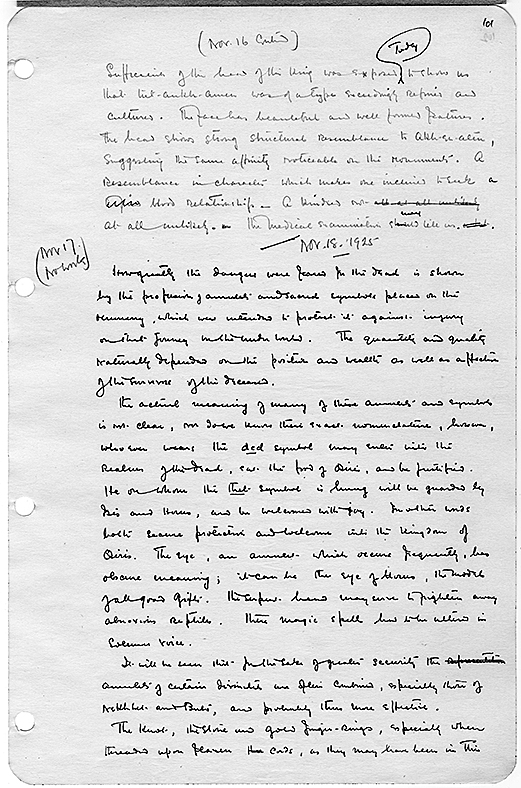 101
(Nov. 16 Contd)
Today
Sufficiency of the head of the King was exposed to show us
that Tut-ankh-amen was of a type exceedingly refined and
cultured. The face has beautiful and well formed features.
The head shows strong structural resemblance to Akh-en-aten,
suggesting the same affinity noticeable on the monuments. A
resemblance in character which makes one inclined to seek a
blood relationship. A kindred not
at all unlikely. The medical examination may tell us.
Nov. 18. 1925
(Nov 17.
No work)
How greatly the dangers were feared for the dead is shown
by the profusion of amulets and sacred symbols placed on the
mummy, which were intended to protect it against injury
on that journey in the under world. The quantity and quality
naturally depended on the position and wealth as well as affection
of the survivors of the diseased.
The actual meaning of many of these amulets and symbols
is not clear, nor do we know their exact nomenclature, however,
whoever wears the ded symbol may enter into the
Realms of the Dead, eat the food of Osiris, and be justified.
He on whom the thet symbol is hung will be guarded by
Isis and Horus, and be welcomed with joy. In other words
both secure protection and welcome into the Kingdom of
Osiris. The eye, an amulet which occurs frequently, has
obscure meaning; it can be the eye of Horus, the model
of all good gifts. The serpent head may serve to frighten away
obnoxious reptiles. Their magic spell has to be uttered in
solemn voice.
It will be seen that for the sake of greater security the
amulets of certain divinities are often combined, especially those of
Nekhbet and Buto, and probably thus more effective.
The Knot, the stone and gold finger-rings, especially when
threaded upon flaxen cords, as they may have been in this